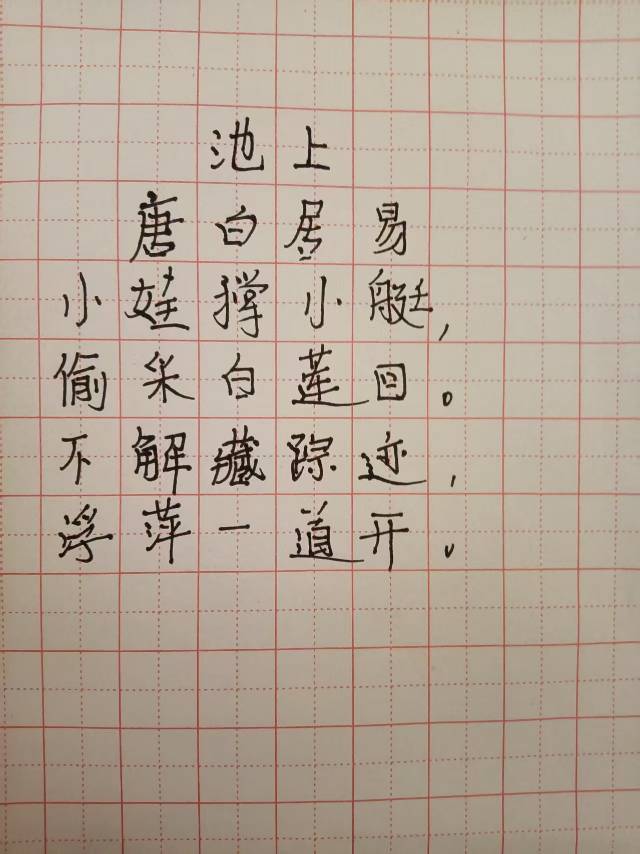 池上
唐白居易
小娃撑小艇,
偷采白莲回。
不解藏踪迹,
浮萍一道开。